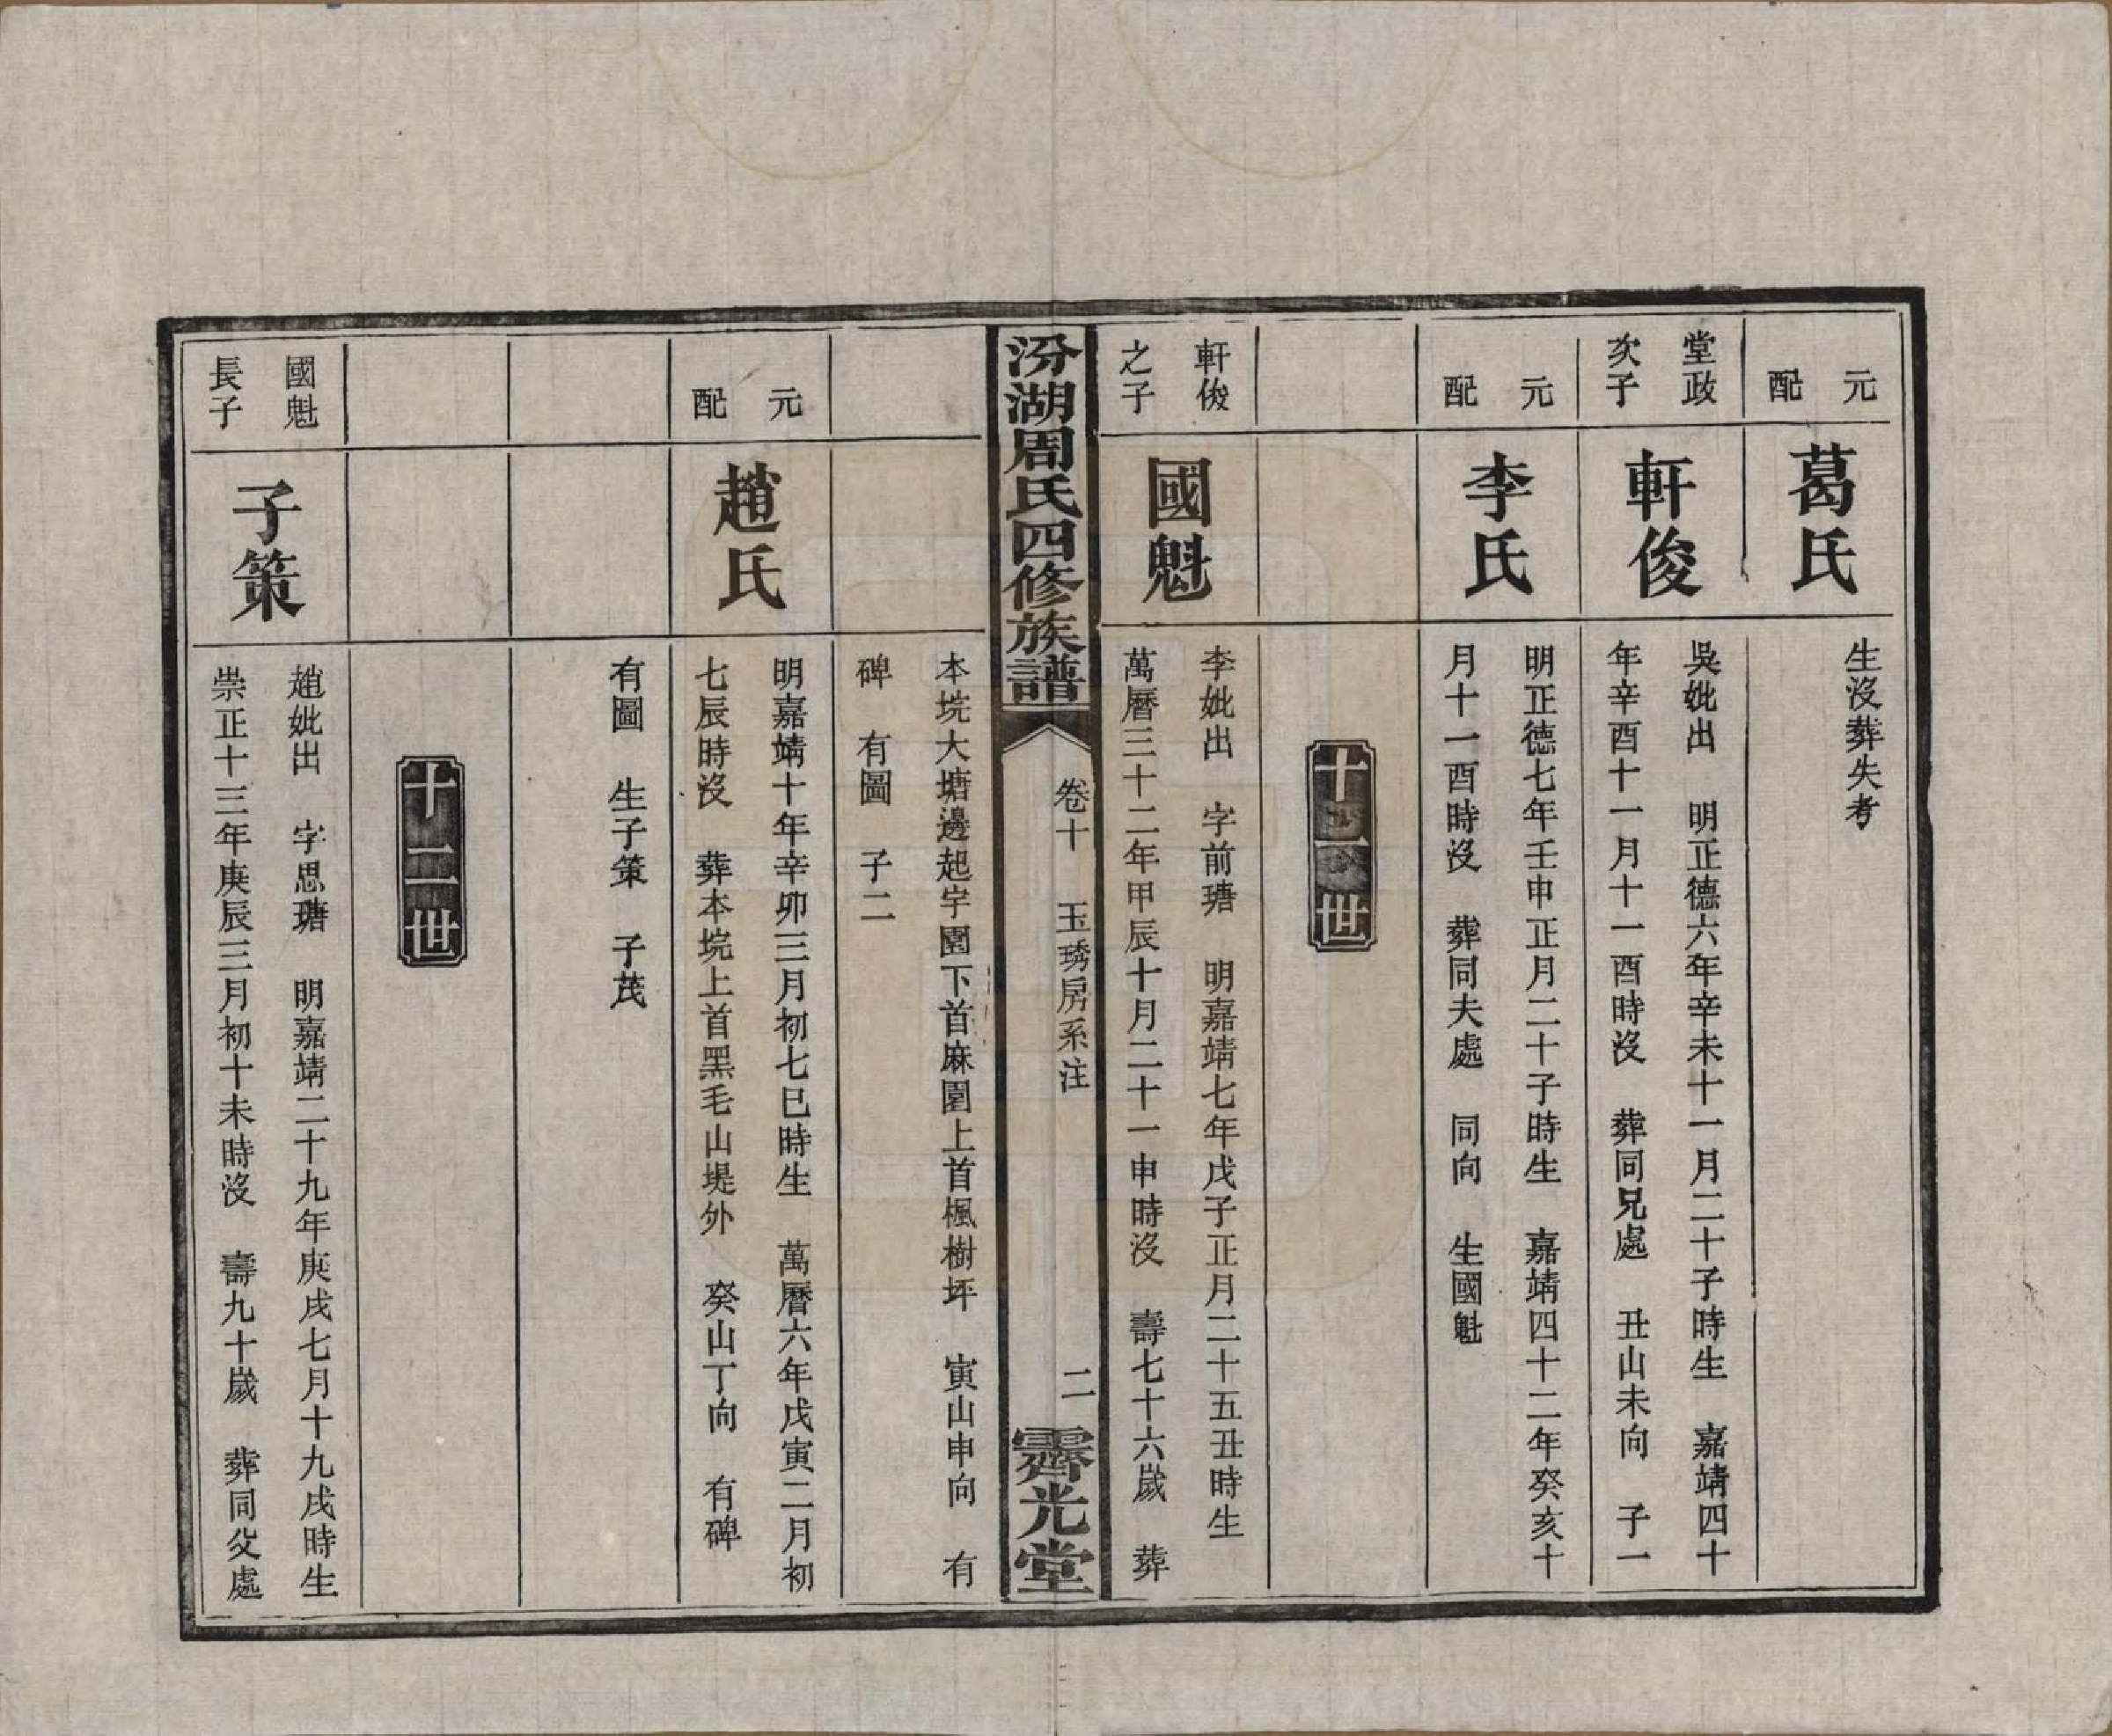 元配
葛氏
生沒葬失考
堂政
次子
軒俊
吳妣出　明正德六年辛未十一月二十子時生　嘉靖四十
年辛酉十一月十一酉時沒　葬同兄處　丑山未向　子一
元配
李氏
明正德七年壬申正月二十子時生　嘉靖四十二年癸亥十
月十一酉時沒　葬同夫處　同向　生國魁
十一世
軒俊
之子
國魁
李妣出　字前瑭　明嘉靖七年戊子正月二十五丑時生
萬曆三十二年甲辰十月二十一申時沒　壽七十六歲　葬
汾湖周氏四修族譜
卷十　玉琇房系注
二
霽光堂
本垸大塘邊起字園下首麻園上首楓樹坪　寅山申向　有
碑　有圖　子二
元配
趙氏
明嘉靖十年辛卯三月初七巳時生　萬曆六年戊寅二月初
七辰時沒　葬本垸上首黑毛山堤外　癸山丁向　有碑
有圖　生子策　子茂
十二世
國魁
長子
子策
趙妣出　字思瑭　明嘉靖二十九年庚戌七月十九戌時生
崇正十三年庚辰三月初十未時沒　壽九十歲　葬同父處